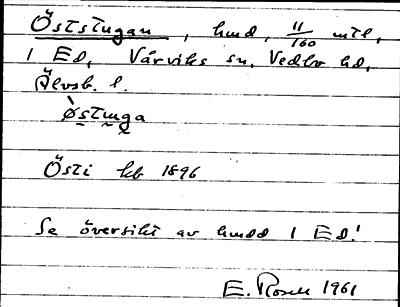 Öststugan, hmd, 11/160 mtl,
i Ed, Vårviks sn, Vedbo hd,
Älvsb. l.
`østuga
Östi kb 1896
Se översikt av hmdd i Ed!
E. Rosell 1961